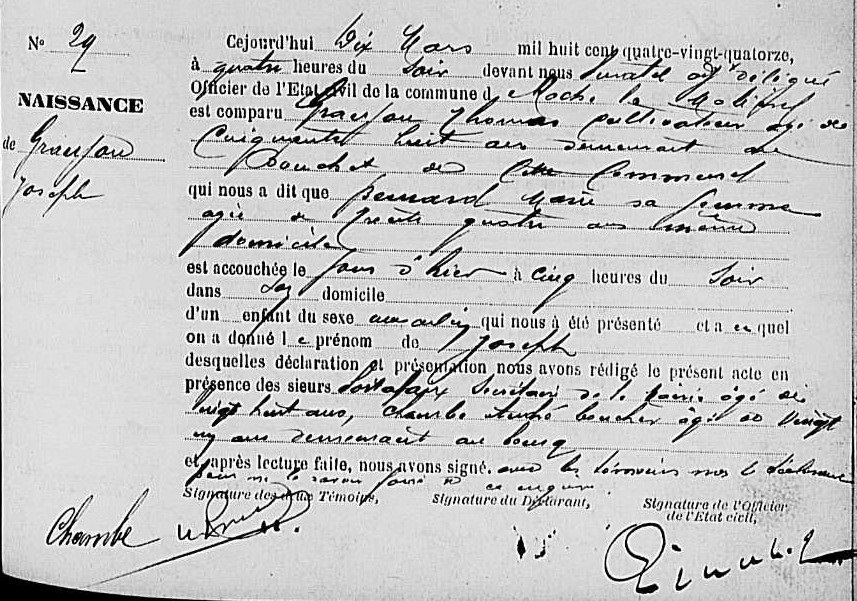 N° 29
NAISSANCE
de Grangeon
Joseph
Cejourd'hui Dix Mars mil huit cent quatre-vingt-quatorze,
à quatre heures du Soir devant nous adjt délégué
Officier de l'Etat civil de la commune d
est comparu Thomas cultivateur agé de
Cinquante huit ans demeurant au
Bouchet de Cette Commune
qui nous a dit que Bernard Marie sa femme
agée de trente quatre ans même
domicile
est accouchée le jour d'hier à cinq heures du Soir
dans son domicile
d'un enfant du sexe masculin qui nous à été présenté et a quel
on a donné le prénom de Joseph
desquelles déclaration et présentation nous avons rédigé le présent acte en
présence des sieurs Secrétaire de la mairie âgé de
vingt huit ans, Chambe boucher âgé de vingt
ans demeurant au bourg
et après lecture faite, nous avons signé. avec les témoins mes le déclarant
pour ne le savoir faire de ce enquis
Signature des deux Témoins, Signature du Déclarant, Signature de l'Officier
de l'Etat civil,
Chambe